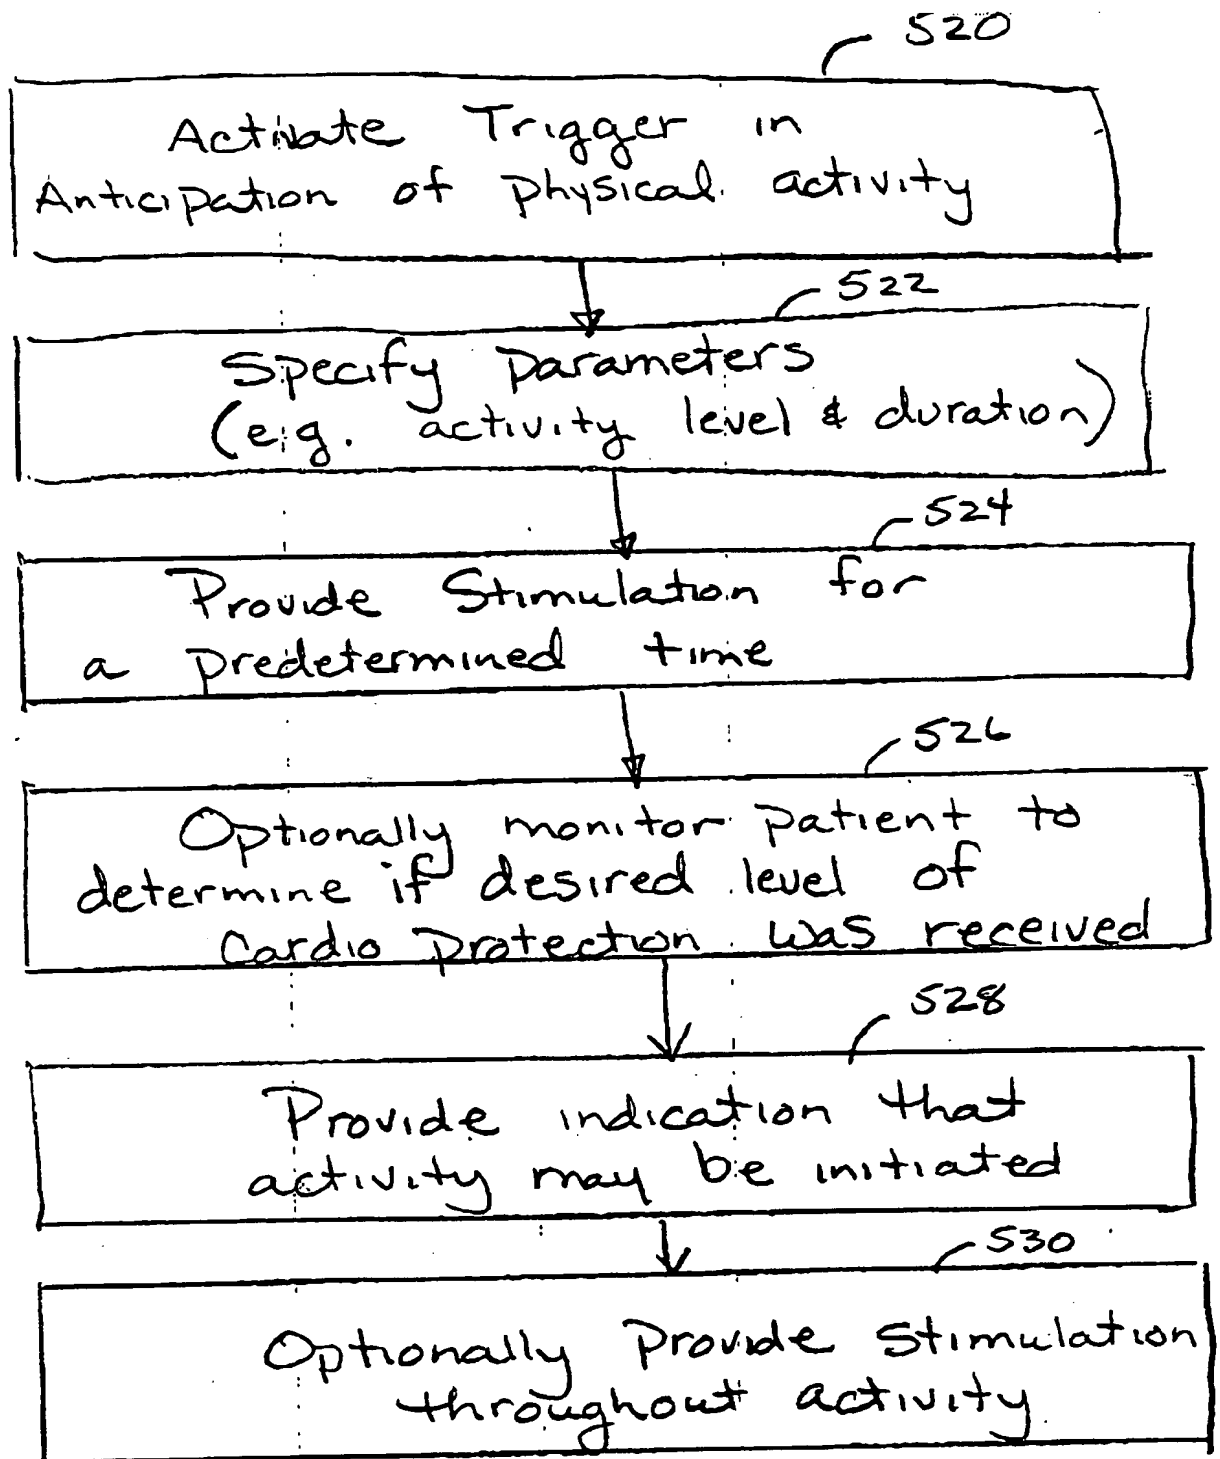 520
Activate Trigger in
Anticipation of physical activity
522
Specify Parameters
(e.g. activity level & duration)
524
Provide Stimulation for
a predetermined time
526
Optionally monitor patient to
determine if desired level of
Cardio Protection was received
528
Provide indication that
activity may be initiated
530
Optionally Provide Stimulation
throughout activity